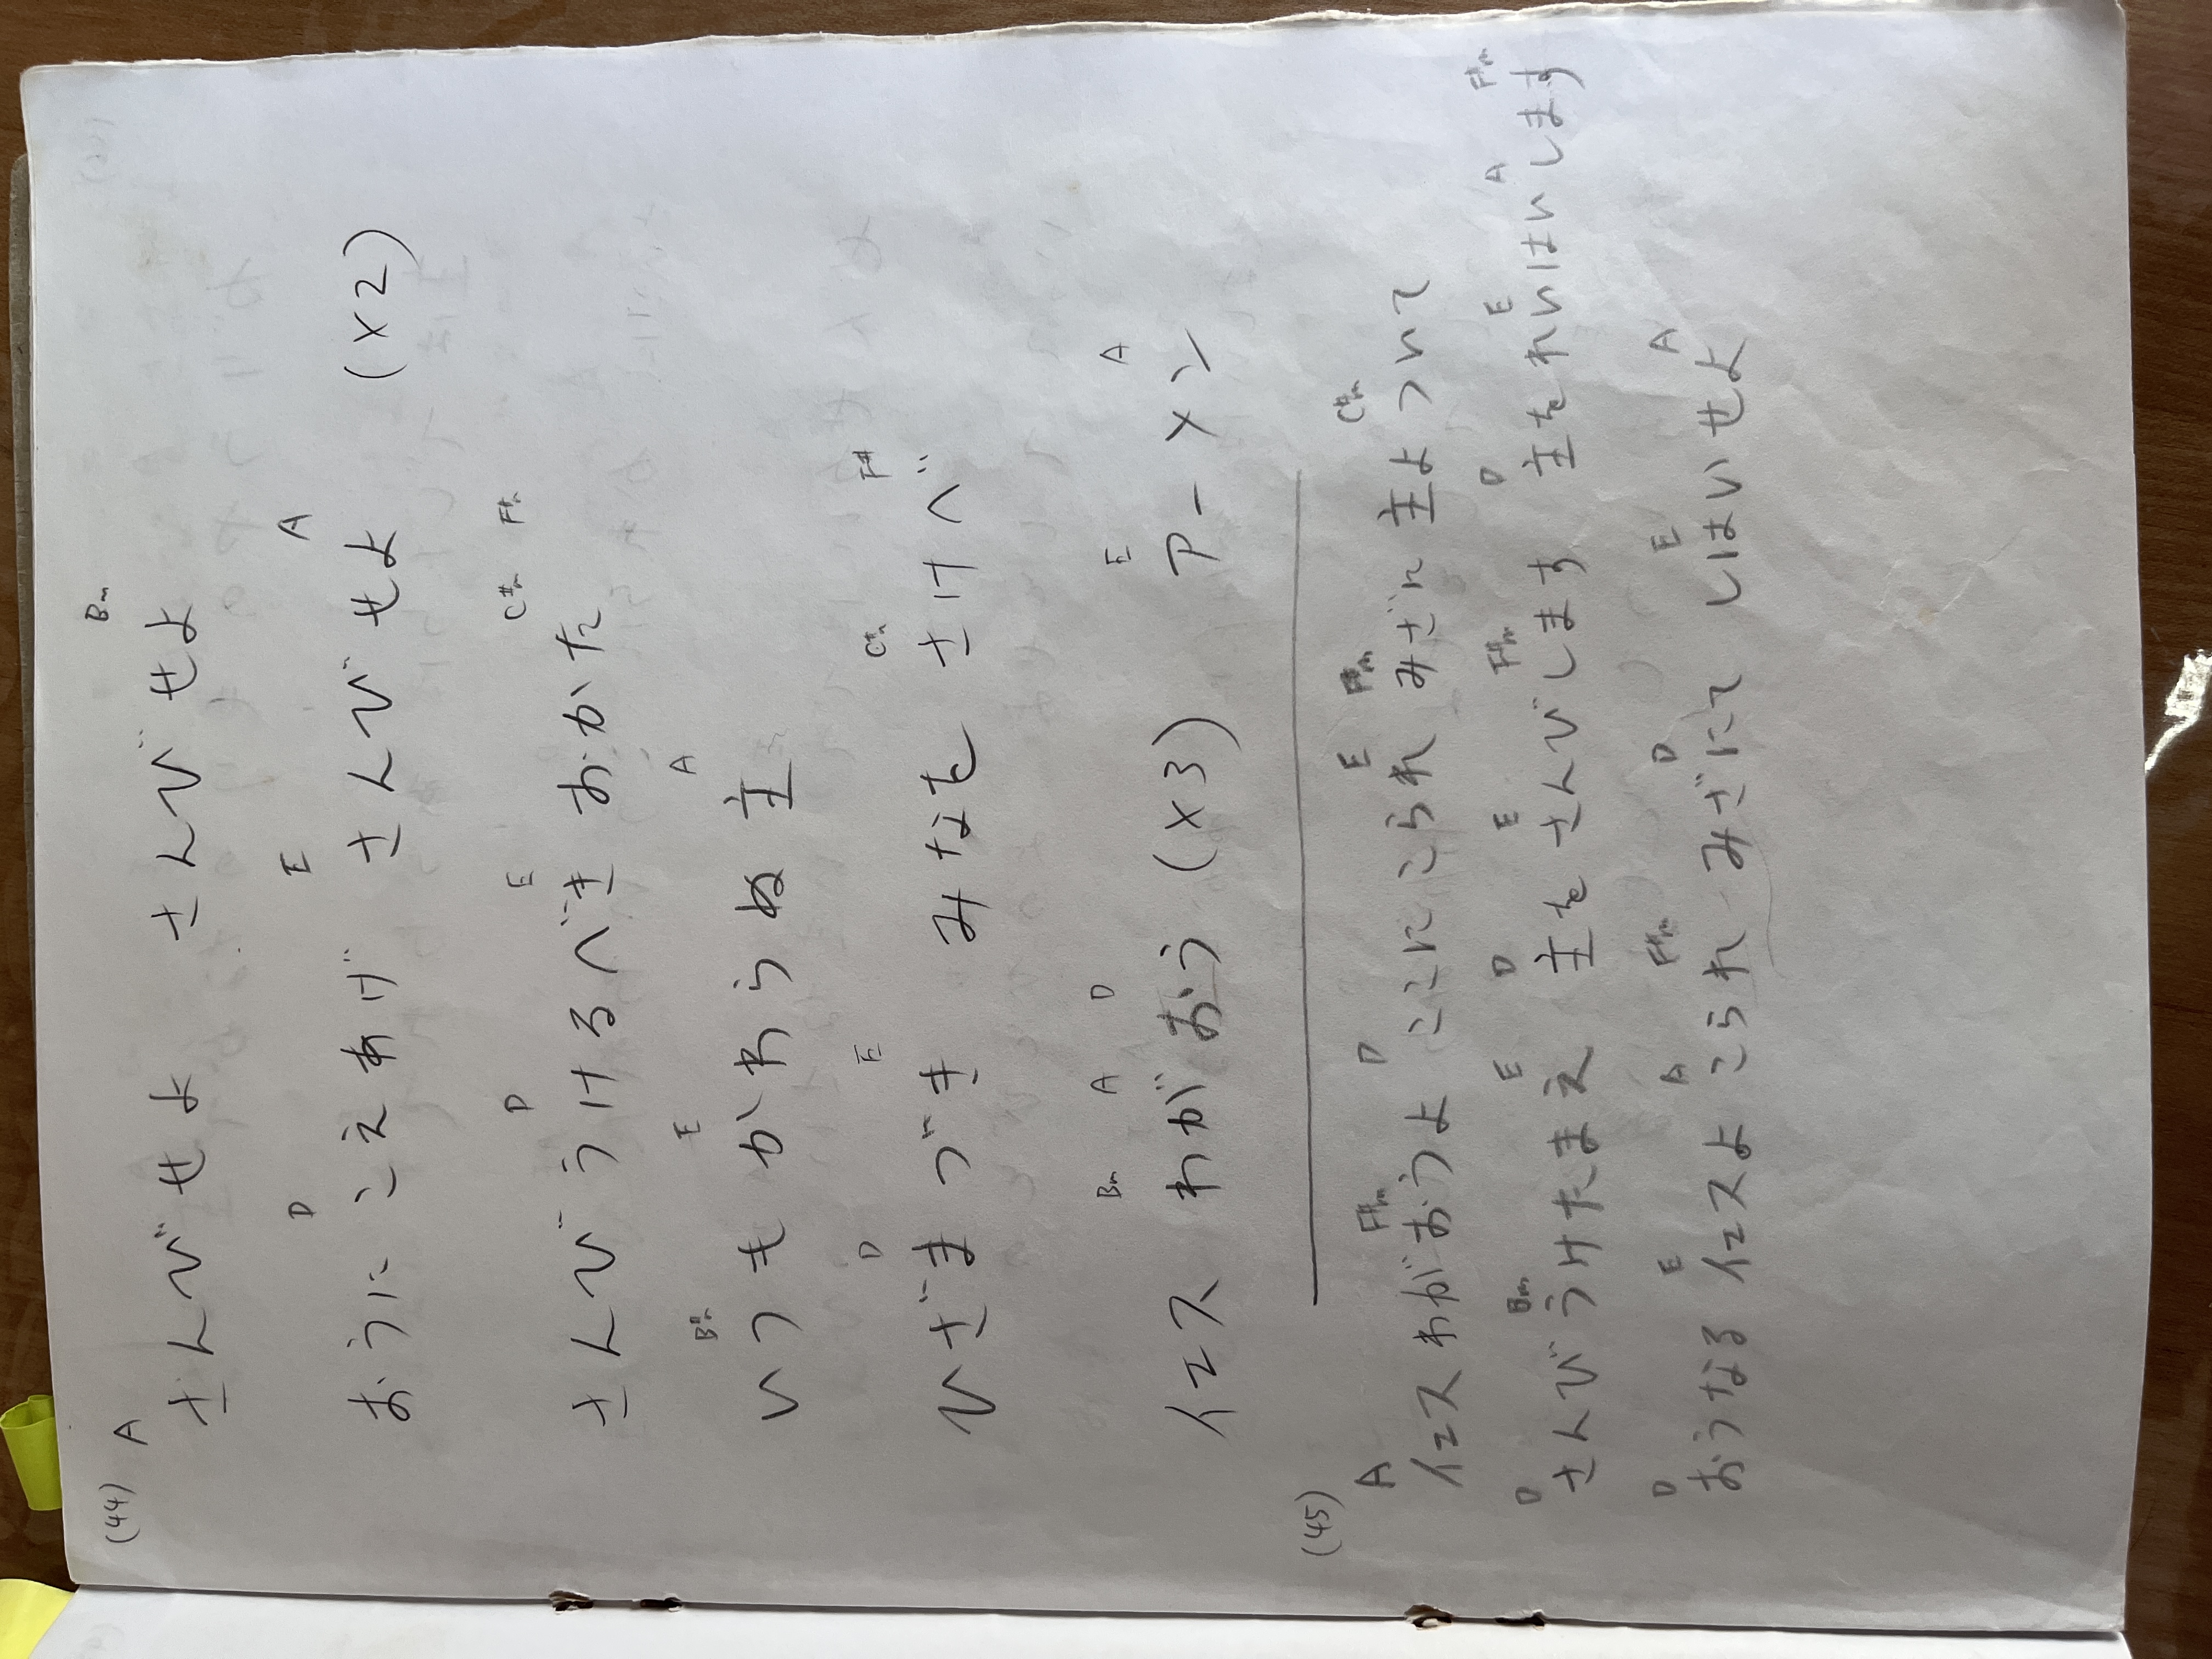 (44) A Bm
さんびせよ さんびせよ
D E A
おうに こえあげ さんびせよ (×2)
D E C#m F#m
さんびうけるべき おかた
Bm E A
いつもかわらぬ主
D E C#m F#
ひざまづき みなを さけべ
Bm A D E A
イエス わがおう (×3) アーメン
(45)
A F#m D E F#m C#m
イエスわがおうよ ここにこられ みざに 主よついて
D Bm E D E F#m D E A F#m
さんびうけたまえ 主をさんびします 主をれいはいします
D E A F#m D E A
おうなるイエスよ こられ みざにて しはいせよ